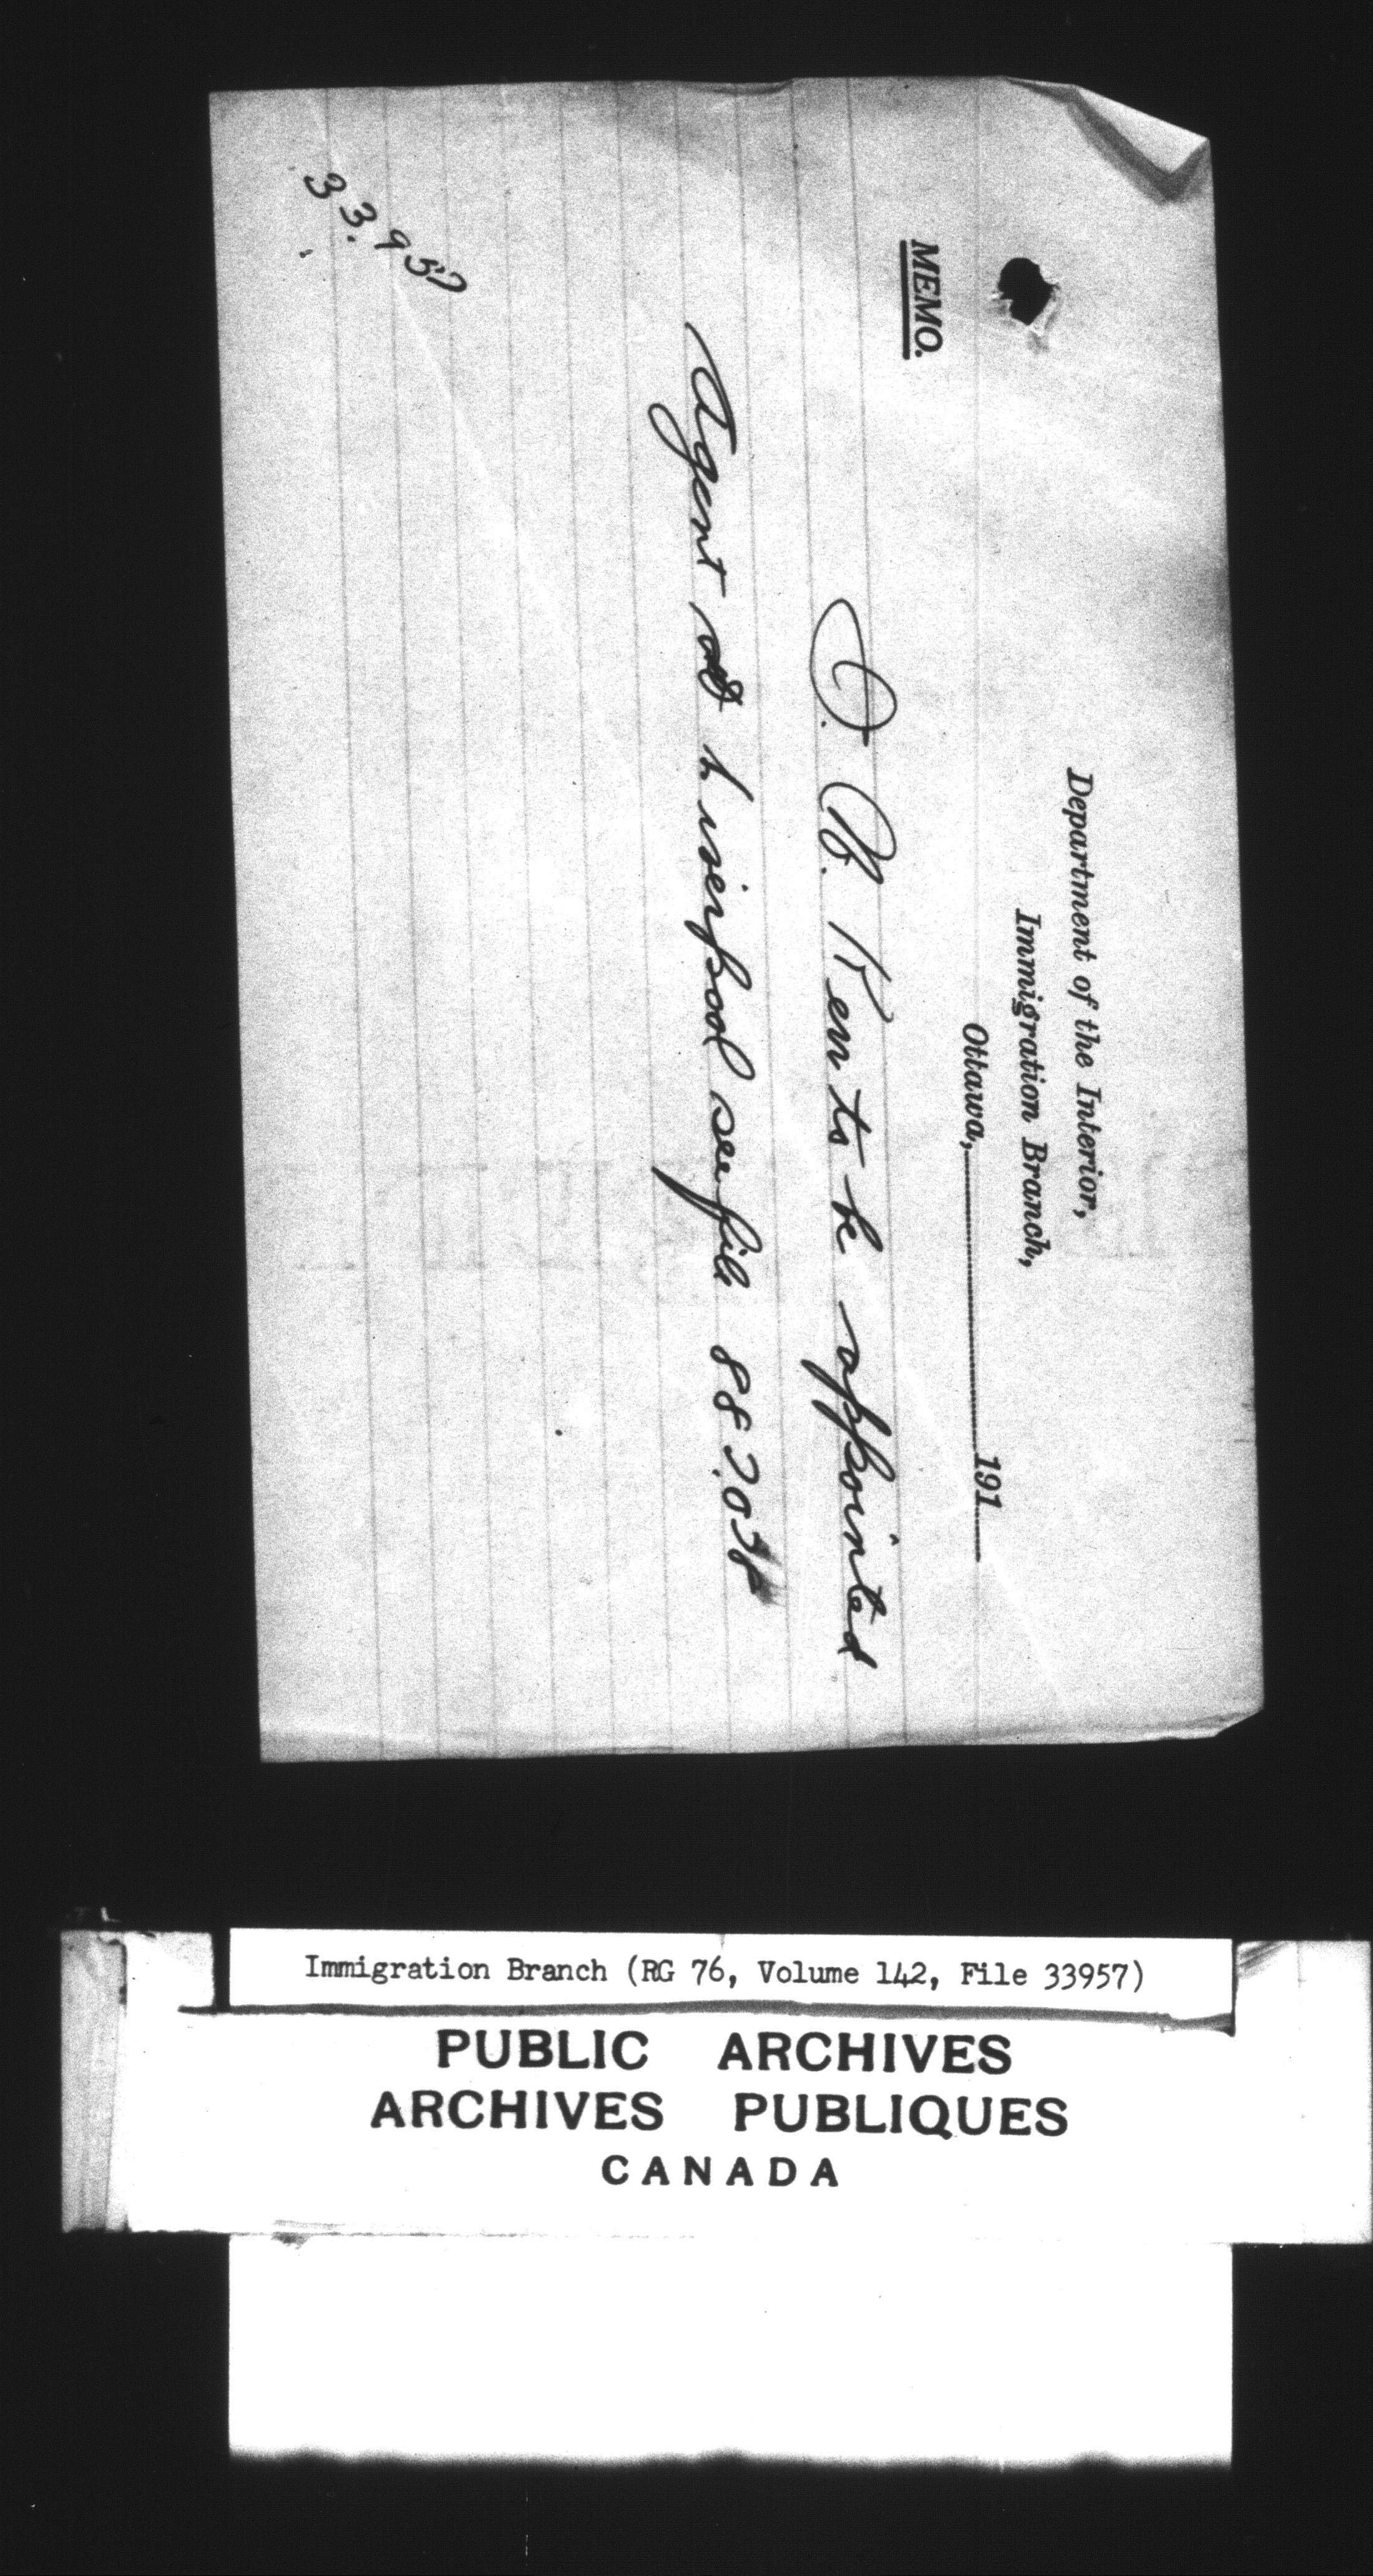 Department of the Interior,
Immigration Branch,
Ottawa, 191
MEMO.
Kent to be appointed
Agent at Liverpool see file 882058
33.957
Immigration Branch (RG 76, Volume 142, File 33957)
PUBLIC ARCHIVES
ARCHIVES PUBLIQUES
CANADA